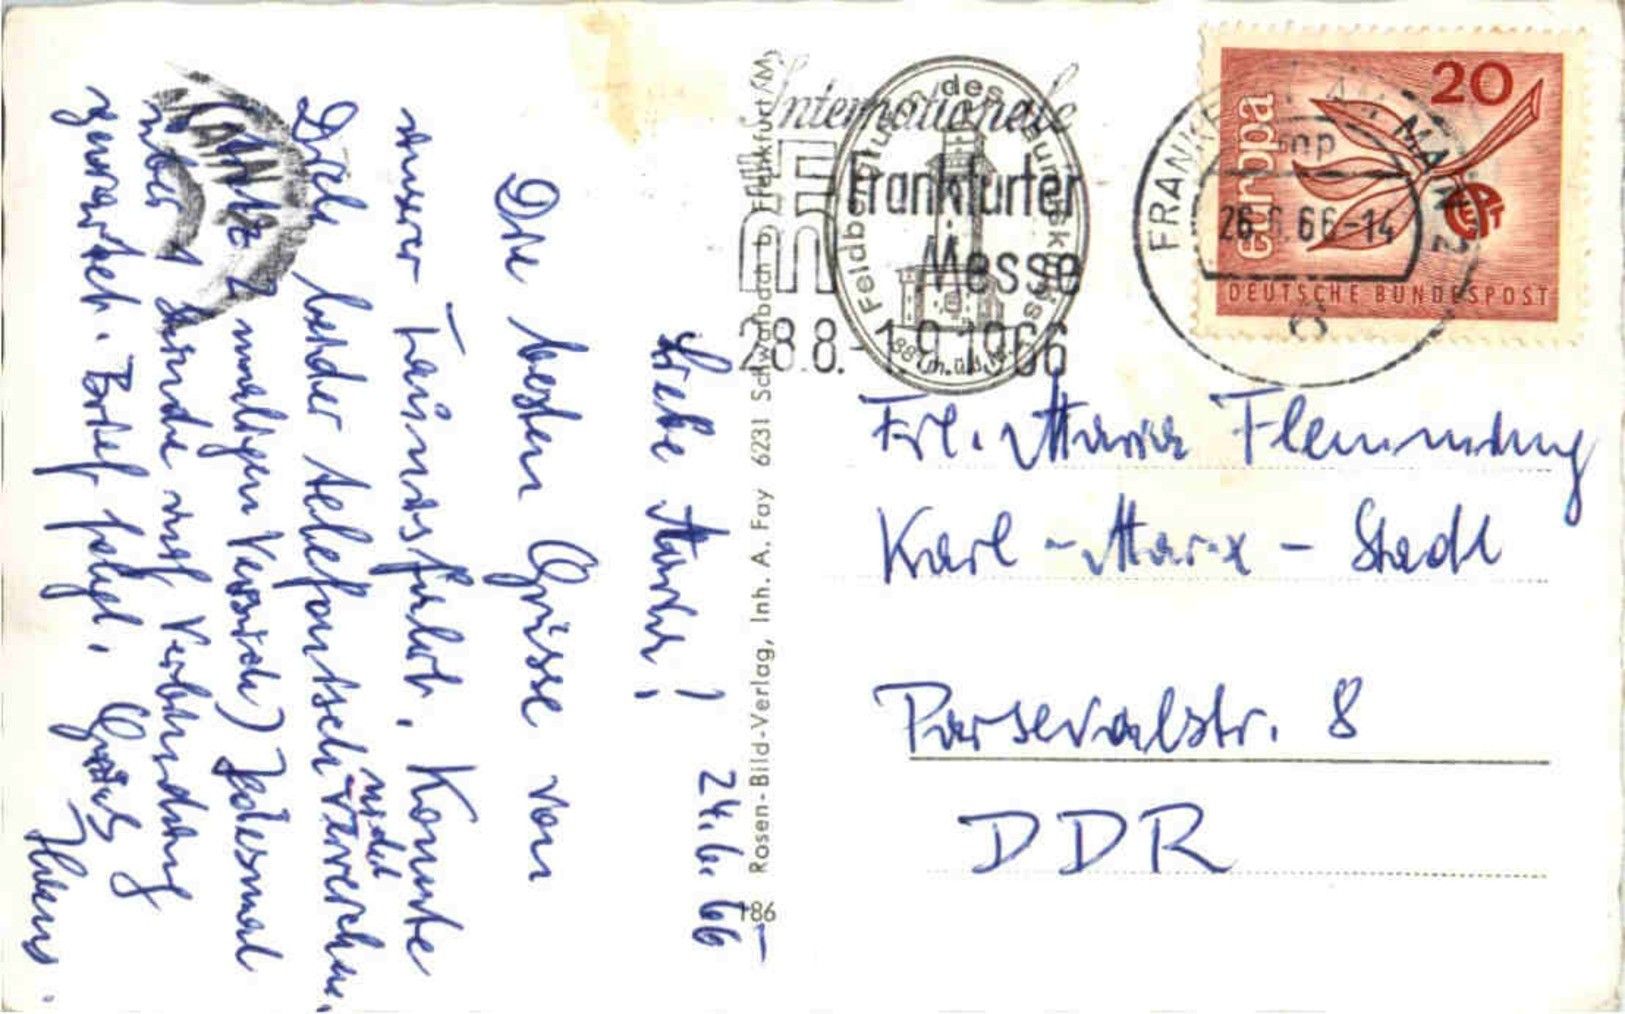 24.6.66
Liebe Maria!
Die besten Grüsse von
unserer Taunusfahrt. Konnte
Dich leider telefonisch nicht erreichen.
2 maligen Versuch) Jedesmal
über 1 Stunde auf Verbindung
gewartet. Brief folgt. Gruß
Internationale
Frankfurter
Messe
28.8.-1.9.1966
Feldbergturm des Taunusklubs
881 m. ü. d. M.
FRANKFURT AM MAIN 2
mp
26.6.66-14
20
europa
CEPT
DEUTSCHE BUNDESPOST
Frl. Maria Flemming
Karl-Marx-Stadt
Parsevalstr. 8
DDR
186 Rosen-Bild-Verlag, Inh. A. Fay 6231 Schwalbach b. Frankfurt/M